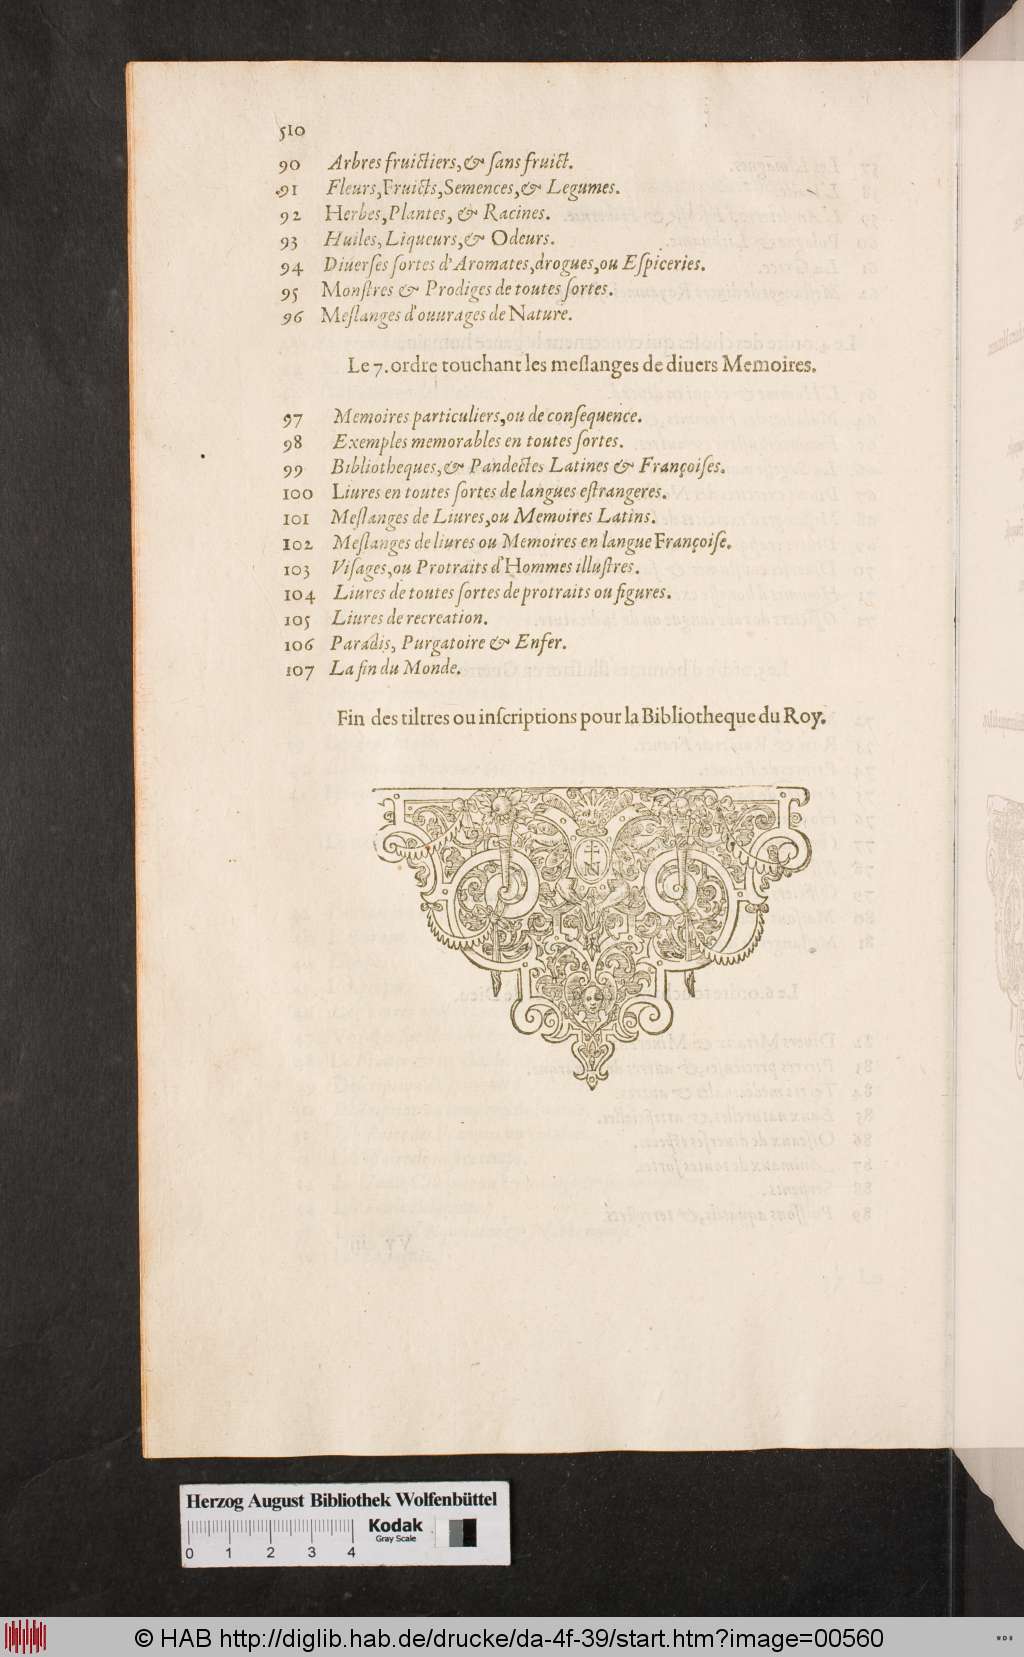 510
90 Arbres fruictiers, & sans fruict.
91 Fleurs, Fruicts, Semences, & Legumes.
92 Herbes, Plantes, & Racines.
93 Huiles, Liqueurs, & Odeurs.
94 Diuerſes ſortes d'Aromates, drogues, ou Eſpiceries.
95 Monſtres & Prodiges de toutes ſortes.
96 Meſlanges d'ouurages de Nature.
Le 7. ordre touchant les meſlanges de diuers Memoires.
97 Memoires particuliers, ou de conſequence.
98 Exemples memorables en toutes ſortes.
99 Bibliotheques, & Pandectes Latines & Françoiſes.
100 Liures en toutes ſortes de langues eſtrangeres.
101 Meſlanges de Liures, ou Memoires Latins.
102 Meſlanges de liures ou Memoires en langue Françoiſe.
103 Viſages, ou Protraits d'Hommes illuſtres.
104 Liures de toutes ſortes de protraits ou figures.
105 Liures de recreation.
106 Paradis, Purgatoire & Enfer.
107 La fin du Monde.
Fin des tiltres ou inſcriptions pour la Bibliotheque du Roy.
Herzog August Bibliothek Wolfenbüttel
Kodak
Gray Scale
0 1 2 3 4
© HAB http://diglib.hab.de/drucke/da-4f-39/start.htm?image=00560